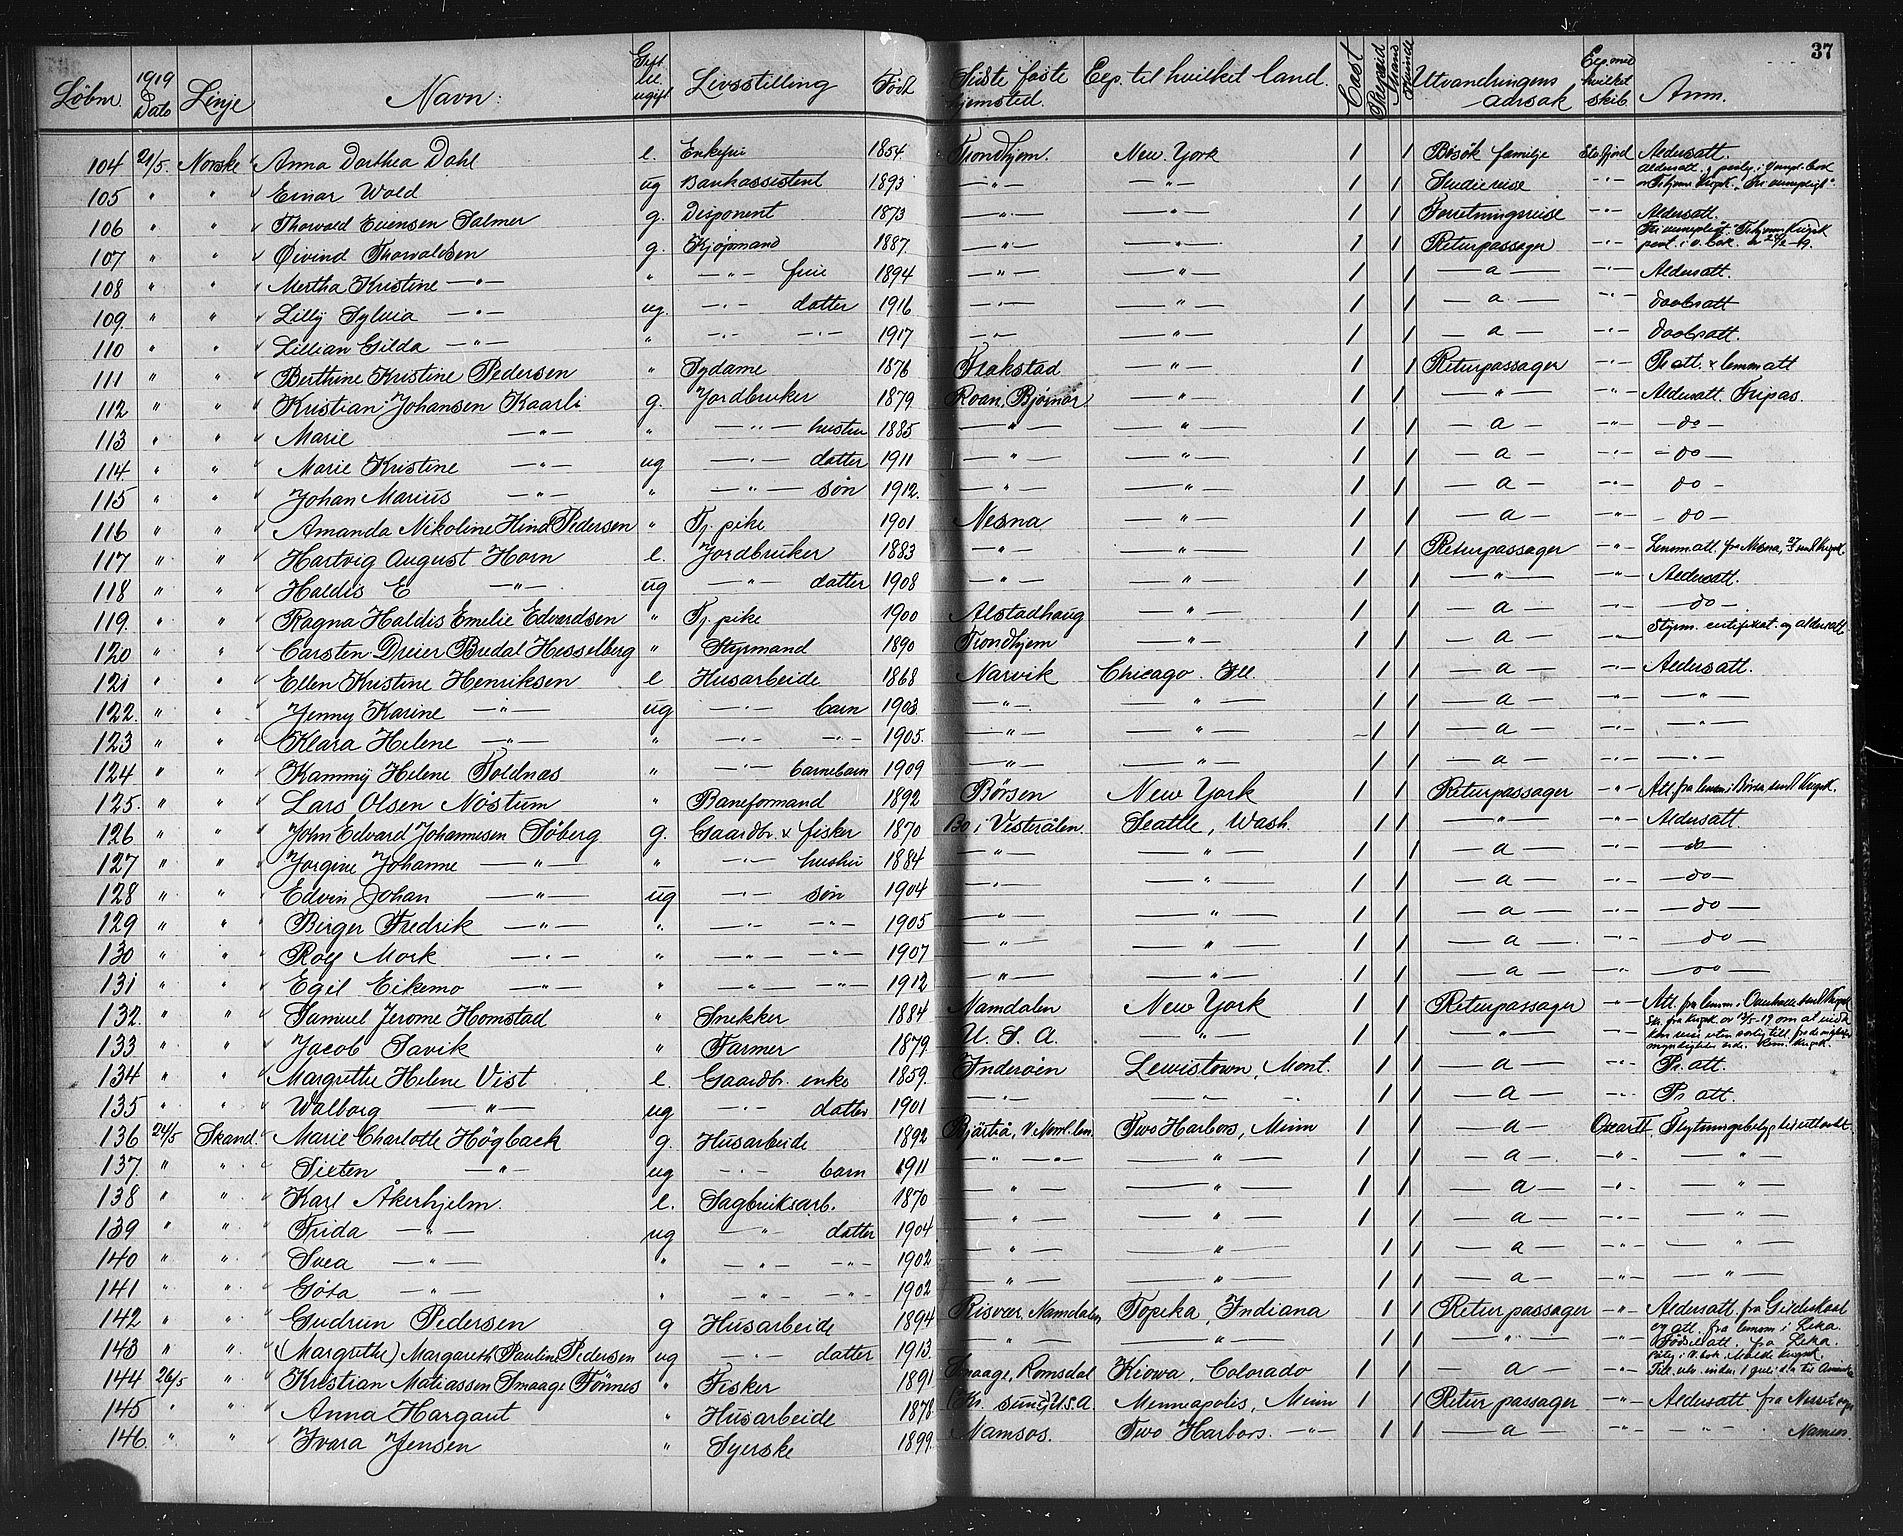 37
Löbnr. 1919 Dato Linje Navn: Gift el. ugift Livsstilling Født Sidste faste hjemsted. Exp. til hvilket land. Cast Prepaid Mand Kvinde Utvandringens aarsak Exp. med hvilket skib Anm.
104 21/5. Norske Anna Dorthea Dahl e. Enkefru 1854 Trondhjem. New York 1 1 Besøk familje Stv fjord Aldersatt.
105 " " " Einar Wold ug Bankassistent 1893 —"— —"— 1 1 Studiereise —"—
106 " " " Thorvald Salmer g. Disponent 1873 —"— —"— 1 1 Forretningsreise —"— Aldersatt.
107 " " " Øivind Thorvaldsen g. Kjøpmand 1887 —"— —"— 1 1 Returpassager —"—
108 " " " Mertha Kristine —"— " —"— frue 1894 —"— —"— 1 1 —a— —"— Aldersatt.
109 " " " Lilly Sylvia —"— ug. —"— datter 1916 —"— —"— 1 1 —a— —"— Daabsatt
110 " " " Lillian Gilda —"— " —"— —"— 1917 —"— —"— 1 1 —a— —"— Daabsatt.
111 " " " Berthine Kristine Pedersen " Sydame 1876 Frakstad —"— 1 1 Returpassager —"— Pr att. & lensm att
112 " " " Kristian Johansen Kaarli g. Jordbruker 1879 Roan, Bjørnør —"— 1 1 —"— —"— Aldersatt. Fripas.
113 " " " Marie —"— " —"— hustru 1885 —"— —"— 1 1 —a— —"— —do—
114 " " " Marie Kristine —"— ug —"— datter 1911 —"— —"— 1 1 —a— —"— —do—
115 " " " Johan Marius —"— " —"— søn 1912. —"— —"— 1 1 —a— —"— do —
116 " " " Amanda Nikoline Hind Pedersen " Tj. pike 1901 Nesna —"— 1 1 —a— —"— —do—
117 " " " Hartvig August Horn e. Jordbruker 1883 —"— —"— 1 1 Returpassager —"— Lensm att. fra Nesna,
118 " " " Haldis E —"— ug —"— datter 1908 —"— —"— 1 1 —"— —"— Aldersatt.
119. " " " Ragna Haldis Emelie Edvardsen " Tj. pike 1900 Alstadhaug —"— 1 1 —a— —"— —do—
120 " " " Carsten Dreier Bredal Hesselberg " Styrmand 1890 Trondhjem —"— 1 1 —a— —"— Styrm. certifikat. og aldersatt.
121 " " " Ellen Kristine Henriksen e Husarbeide 1868 Narvik Chicago. Ill 1 1 —a— —"— Aldersatt.
122. " " " Jenny Karine —"— ug —"— barn 1903 —"— —"— 1 1 —a— —"— —"—
123 " " " Klara Helene —"— " —"— —"— 1905. —"— —"— 1 1 —a— —"— —"—
124 " " " Kammy Helene Toldnas " —"— barnebarn 1909 —"— —"— 1 1 —a— —"— —"—
125. " " " Lars Olsen Nøstum " Baneformand 1892 Børsen New York 1 1 Returpassager —"— Att. fra lensm i Børsen
126 " " " John Edvard Johannesen Söberg g. Gaardbr. & fisker 1870 Bo i Vesterålen Seattle, Wash. 1 1 —"— —"— Aldersatt.
127 " " " Jorgine Johanne —"— " —"— hustru 1884 —"— —"— 1 1 —a— —"— —do—
128 " " " Edvin Johan —"— ug —"— søn 1904 —"— —"— 1 1 —a— —"— —do—
129 " " " Birger Fredrik —"— " —"— —"— 1905 —"— —"— 1 1 —a— —"— —do—
130 " " " Rolf Mork —"— " —"— —"— 1907 —"— —"— 1 1 —a— —"— —do—
131 " " " Egil Eikemo —"— " —"— —"— 1912 —"— —"— 1 1 —a— —"— —do—
132. " " " Samuel Jerome Homstad " Snekker 1884 Namdalen New York 1 1 Returpassager —"— Att. fra lensm.
133 " " " Jacob Savik " Farmer 1879 U. S. A. —"— 1 1 —"— —"—
134 " " " Margrethe Helene Vist e. Gaardbr. enke 1859. Inderøin Lewistown, Mont. 1 1 —a— —"— Pr. att.
135 " " " Walborg —"— ug —"— datter 1901 —"— —"— 1 1 —a— —"— Pr att.
136 24/5 Skand. " Marie Charlotte Högback g. Husarbeide 1892 Bjärtrå, V. Norrl. len. Two Harbors, Minn 1 1 —a— Oscar II.
137. " " " Sixten —"— ug —"— barn 1911 —"— —"— 1 1 —a— —"— —"—
138 " " " Karl Åkerhjelm. e. Sagbruksarb. 1870 —"— —"— 1 1 —a— —"— —"—
139 " " " Frida —"— ug —"— datter 1904 —"— —"— 1 1 —a— —"— —"—
140 " " " Svea —"— " —"— —"— 1902 —"— —"— 1 1 —a— —"— —"—
141 " " " Göta —"— " —"— —"— 1902 —"— —"— 1 1 —a— —"— —"—
142 " " " Gudrun Pedersen g Husarbeide 1894 Risvær, Namdalen Topeka, Indiana 1 1 Retur passager —"— Aldersatt. fra Gildeskaal og att. fra lensm i Leka.
143 " " " (Margrethe) Margareth Pauline Pedersen ug —"— datter 1913 —"— —"— 1 1 —"— —"— Fødselatt. fra Leka.
144 26/5 " " Kristian Matiassen Smaage Tönnes " Fisker 1891 Smaage, Romsdal Kiowa, Colorado 1 1 —a— —"—
145 " " " Anna Hargaut " Husarbeide 1878 Kr. sund, U.S.A. Minneapolis, Minn 1 1 Retur passager —"— Aldersatt. fra
146. " " " Ivara Jensen " Syerske 1899 Namsos. Two Harbors. —"— 1 1 —a— —"— —"— Namsos.